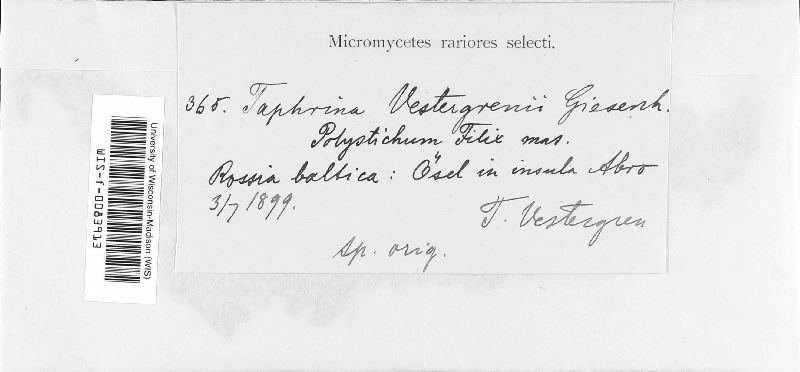 Micromycetes rariores selecti.
365. Taphrina Vestergrenii Giesenh.
Polystichum Filix mas.
Rossia baltica: Ösel in insula Abro
3/7 1899.
T. Vestergren
sp. orig.
University of Wisconsin-Madison (WIS)
WIS-f-0083913